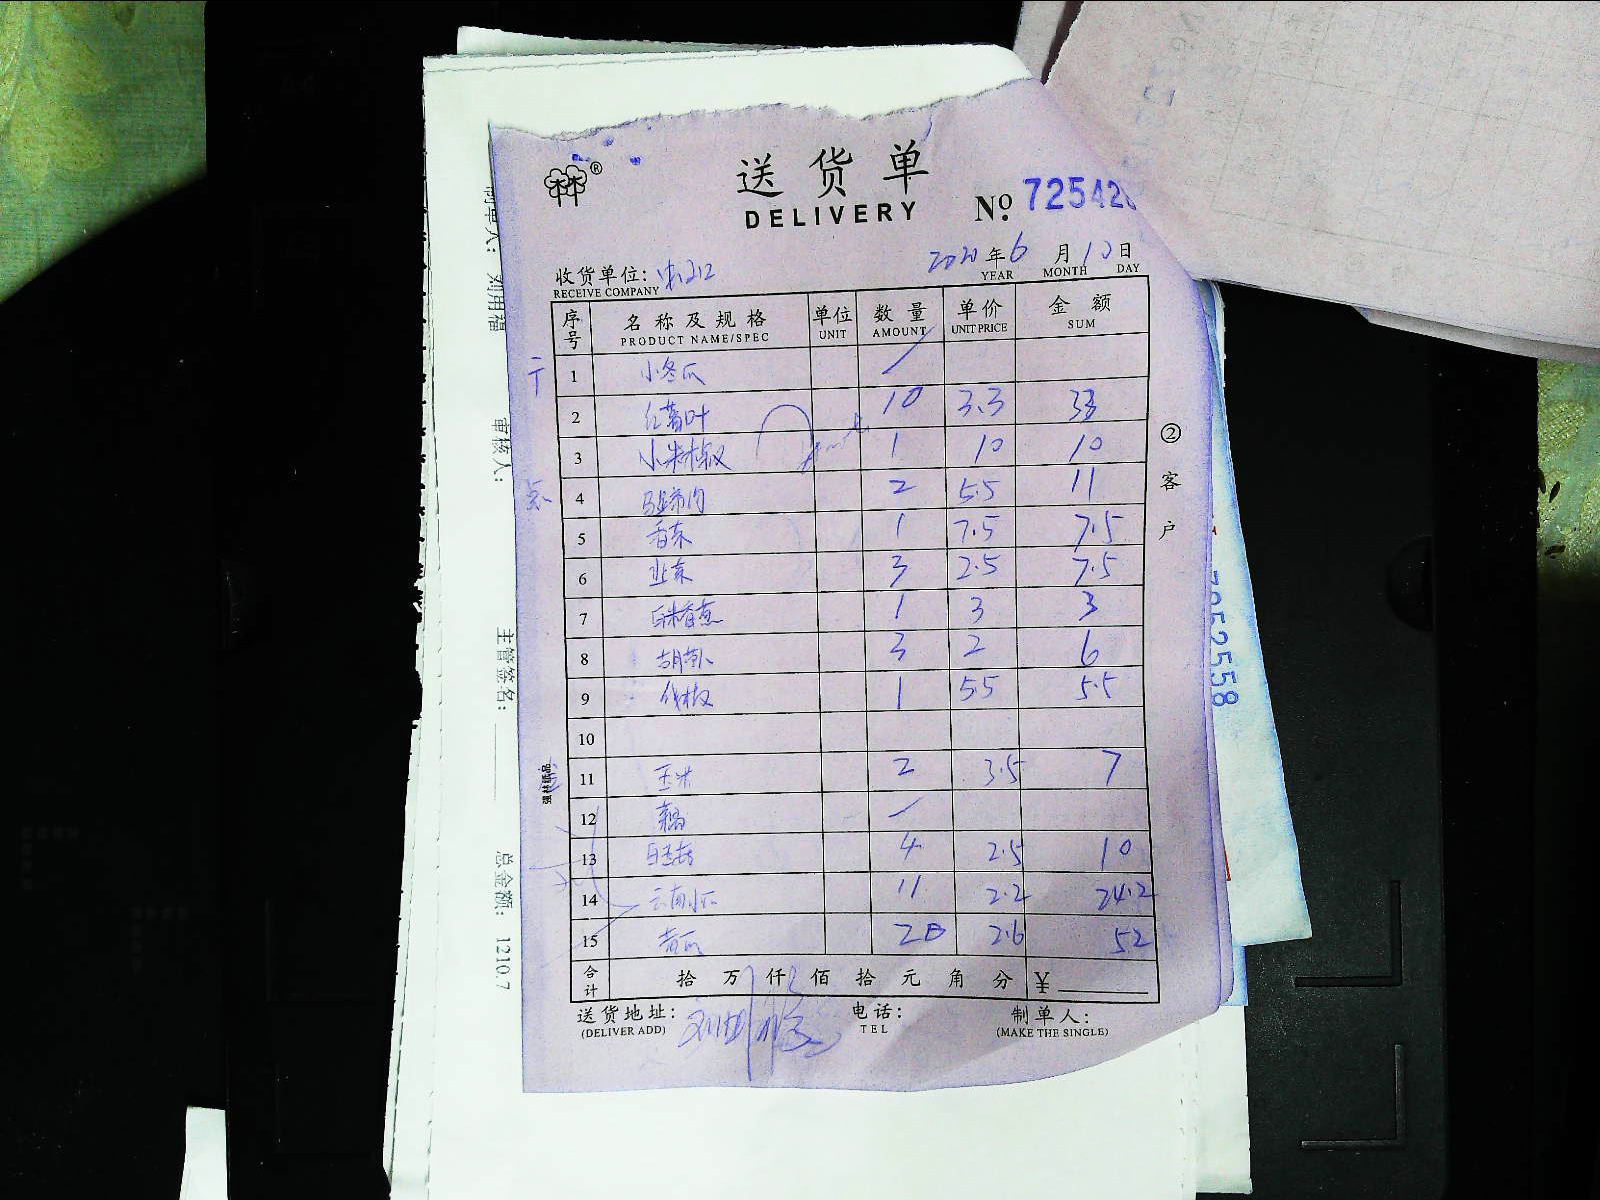 送货单
DELIVERY
№ 72542
收货单位:
RECEIVE COMPANY
2020年6月10日
YEAR MONTH DAY
序号 名称及规格 单位 数量 单价 金额
PRODUCT NAME/SPEC UNIT AMOUNT UNIT PRICE SUM
1 小冬瓜
2 红薯叶 10 3.3 33
3 小米椒 1 10 10
4 马蹄肉 2 5.5 11
5 香菜 1 7.5 7.5
6 韭菜 3 2.5 7.5
7 1 3 3
8 3 2 6
9 1 5.5 5.5
10
11 玉米 2 3.5 7
12 藕
13 4 2.5 10
14 云南小瓜 11 2.2 24.2
15 青瓜 20 2.6 52
合计 拾 万 仟 佰 拾 元 角 分 ¥
送货地址: 电话: 制单人:
(DELIVER ADD) TEL (MAKE THE SINGLE)
② 客户
强林纸品
制单人: 刘用福
审核人:
主管签名:
总金额: 1210.7
7952558